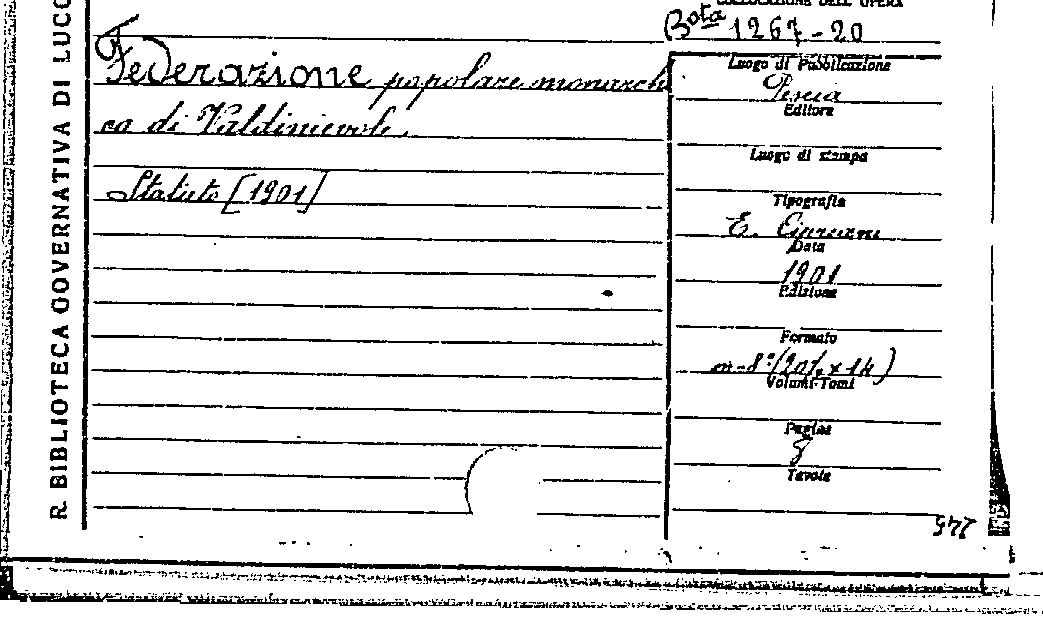 R. BIBLIOTECA GOVERNATIVA DI LUCC
COLLOCAZIONE DELL'OPERA
Bota 1267-20
Federazione popolare monarchi
ca di Valdinievole.
Statuto [1901]
Luogo di Pubblicazione
Pescia
Editore
Luogo di stampa
Tipografia
E. Cipriani
Data
1901
Edizione
Formato
in-8º (20½ x 14)
Volumi-Tomi
Pagine
8
Tavole